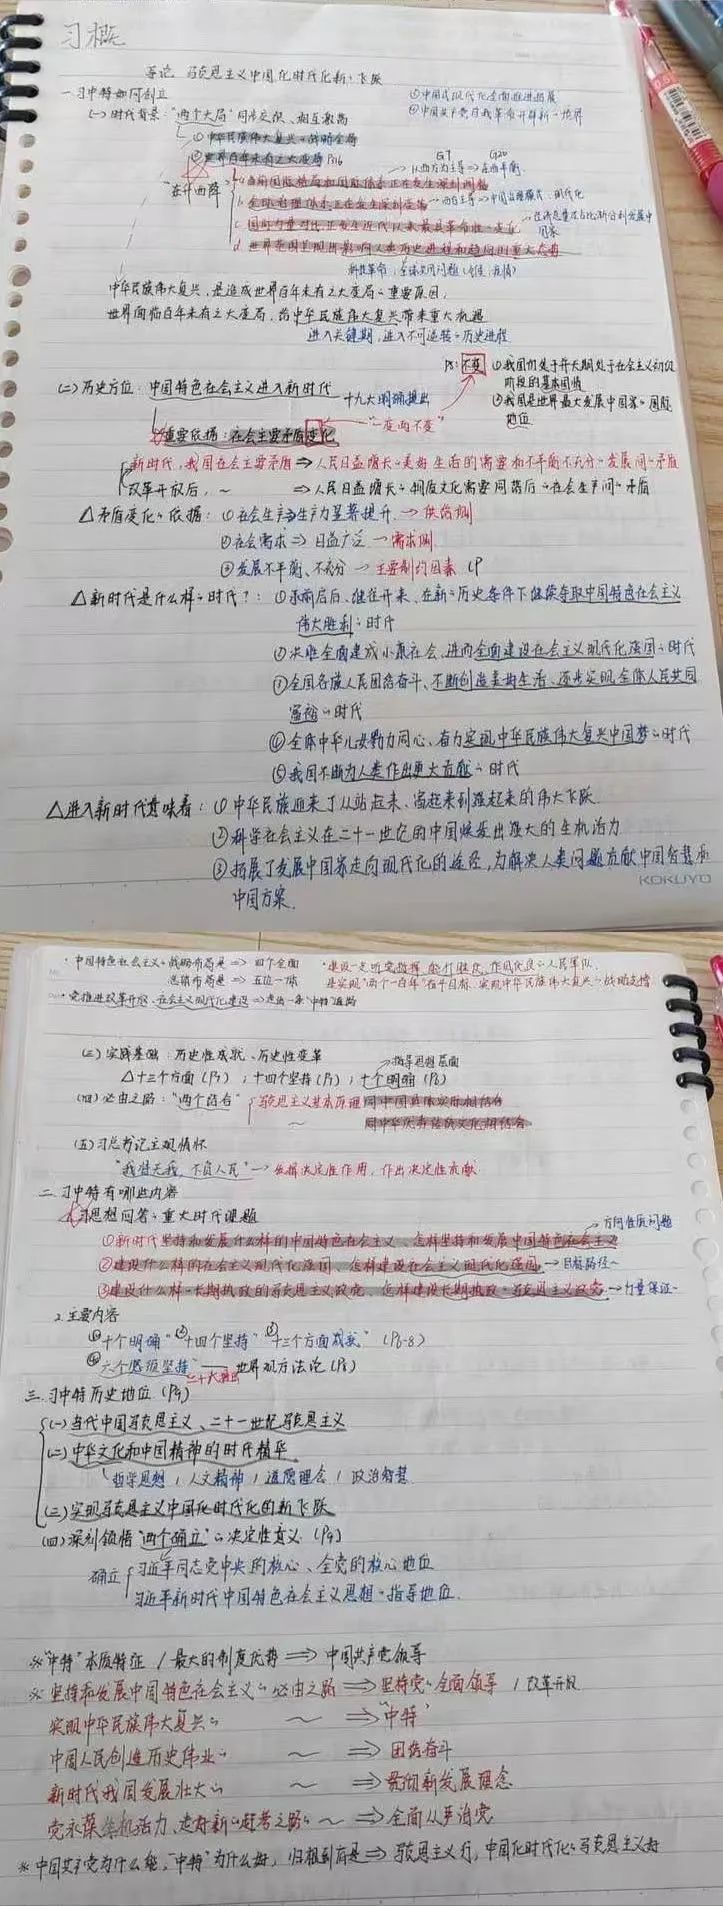 习概
导论 马克思主义中国化时代化新飞跃
一.习中特如何创立
①中国式现代化全面推进拓展
②中国共产党自我革命开辟新境界
(一)时代背景:"两个大局"同步交织、相互激荡
①中华民族伟大复兴战略全局
②世界百年未有之大变局 P116
G7 G20
从西方为主导→东西平衡
"东升西降"
a 当前国际格局和国际体系正在发生深刻调整
b 全球治理体系正在发生深刻变革
c 国际力量对比正发生近代以来最具革命性变化
d 世界范围呈现出影响人类历史进程和趋向的重大态势
科技革命,全球共同问题(气候、疫情)
中华民族伟大复兴,是造成世界百年未有之大变局重要原因,
世界面临百年未有之大变局,给中华民族伟大复兴带来重大机遇
进入关键期,进入不可逆转历史进程
PS:不变 ①我国仍处于并长期处于社会主义初级
阶段的基本国情
②我国是世界最大发展中国家国际
地位
(二)历史方位:中国特色社会主义进入新时代 十九大明确提出
重要依据:社会主要矛盾变化 "一变两不变"
新时代,我国社会主要矛盾⇒人民日益增长美好生活的需要和不平衡不充分发展间矛盾
改革开放后,～ ⇒人民日益增长物质文化需要同落后社会生产间矛盾
△矛盾变化依据:①社会生产⇒生产力显著提升→供给侧
②社会需求⇒日益广泛→需求侧
③发展不平衡、不充分→主要制约因素
△新时代是什么样时代?:①承前启后、继往开来、在新历史条件下继续夺取中国特色社会主义
伟大胜利时代
②决胜全面建成小康社会、进而全面建设社会主义现代化强国时代
③全国各族人民团结奋斗、不断创造美好生活、逐步实现全体人民共同
富裕时代
④全体中华儿女勠力同心、奋力实现中华民族伟大复兴中国梦时代
⑤我国不断为人类作出更大贡献时代
△进入新时代意味着:①中华民族迎来了从站起来、富起来到强起来的伟大飞跃
②科学社会主义在二十一世纪的中国焕发出强大的生机活力
③拓展了发展中国家走向现代化的途径,为解决人类问题贡献中国智慧和
中国方案.
KOKUYO
·中国特色社会主义战略布局是⇒四个全面
总体布局是⇒五位一体
·建设一支听党指挥、能打胜仗、作风优良人民军队,
是实现"两个一百年"奋斗目标、实现中华民族伟大复兴战略支撑
·党推进改革开放、社会主义现代化建设⇒走出一条"中特"道路
(三)实践基础:历史性成就、历史性变革
指导思想层面
△十三个方面(P7);十四个坚持(P7);十个明确(P6)
(四)必由之路:"两个结合" 马克思主义基本原理同中国具体实际相结合
～ 同中华优秀传统文化相结合
(五)习总书记主观情怀
"我将无我,不负人民"→发挥决定性作用,作出决定性贡献
二.习中特有哪些内容
1.习思想回答重大时代课题
方向性质问题
①新时代坚持和发展什么样的中国特色社会主义、怎样坚持和发展中国特色社会主义
②建设什么样的社会主义现代化强国、怎样建设社会主义现代化强国→目标路径～
③建设什么样长期执政的马克思主义政党,怎样建设长期执政马克思主义政党→力量保证～
2.主要内容
①"十个明确"②"十四个坚持"③"十三个方面成就"(P6-8)
④"六个必须坚持"——世界观方法论(P8)
二十大提出
三.习中特历史地位(P9)
(一)当代中国马克思主义、二十一世纪马克思主义
(二)中华文化和中国精神的时代精华
哲学思想/人文精神/道德理念/政治智慧
(三)实现马克思主义中国化时代化的新飞跃
(四)深刻领悟"两个确立"决定性意义(P9)
确立 习近平同志党中央的核心、全党的核心地位
习近平新时代中国特色社会主义思想指导地位.
※"中特"本质特征/最大的制度优势⇒中国共产党领导
※坚持和发展中国特色社会主义必由之路⇒坚持党全面领导/改革开放
实现中华民族伟大复兴 ～⇒"中特"
中国人民创造历史伟业 ～⇒团结奋斗
新时代我国发展壮大 ～⇒贯彻新发展理念
党永葆生机活力、走好新"赶考之路"～⇒全面从严治党
※中国共产党为什么能,"中特"为什么好,归根到底是⇒马克思主义行,中国化时代化马克思主义好